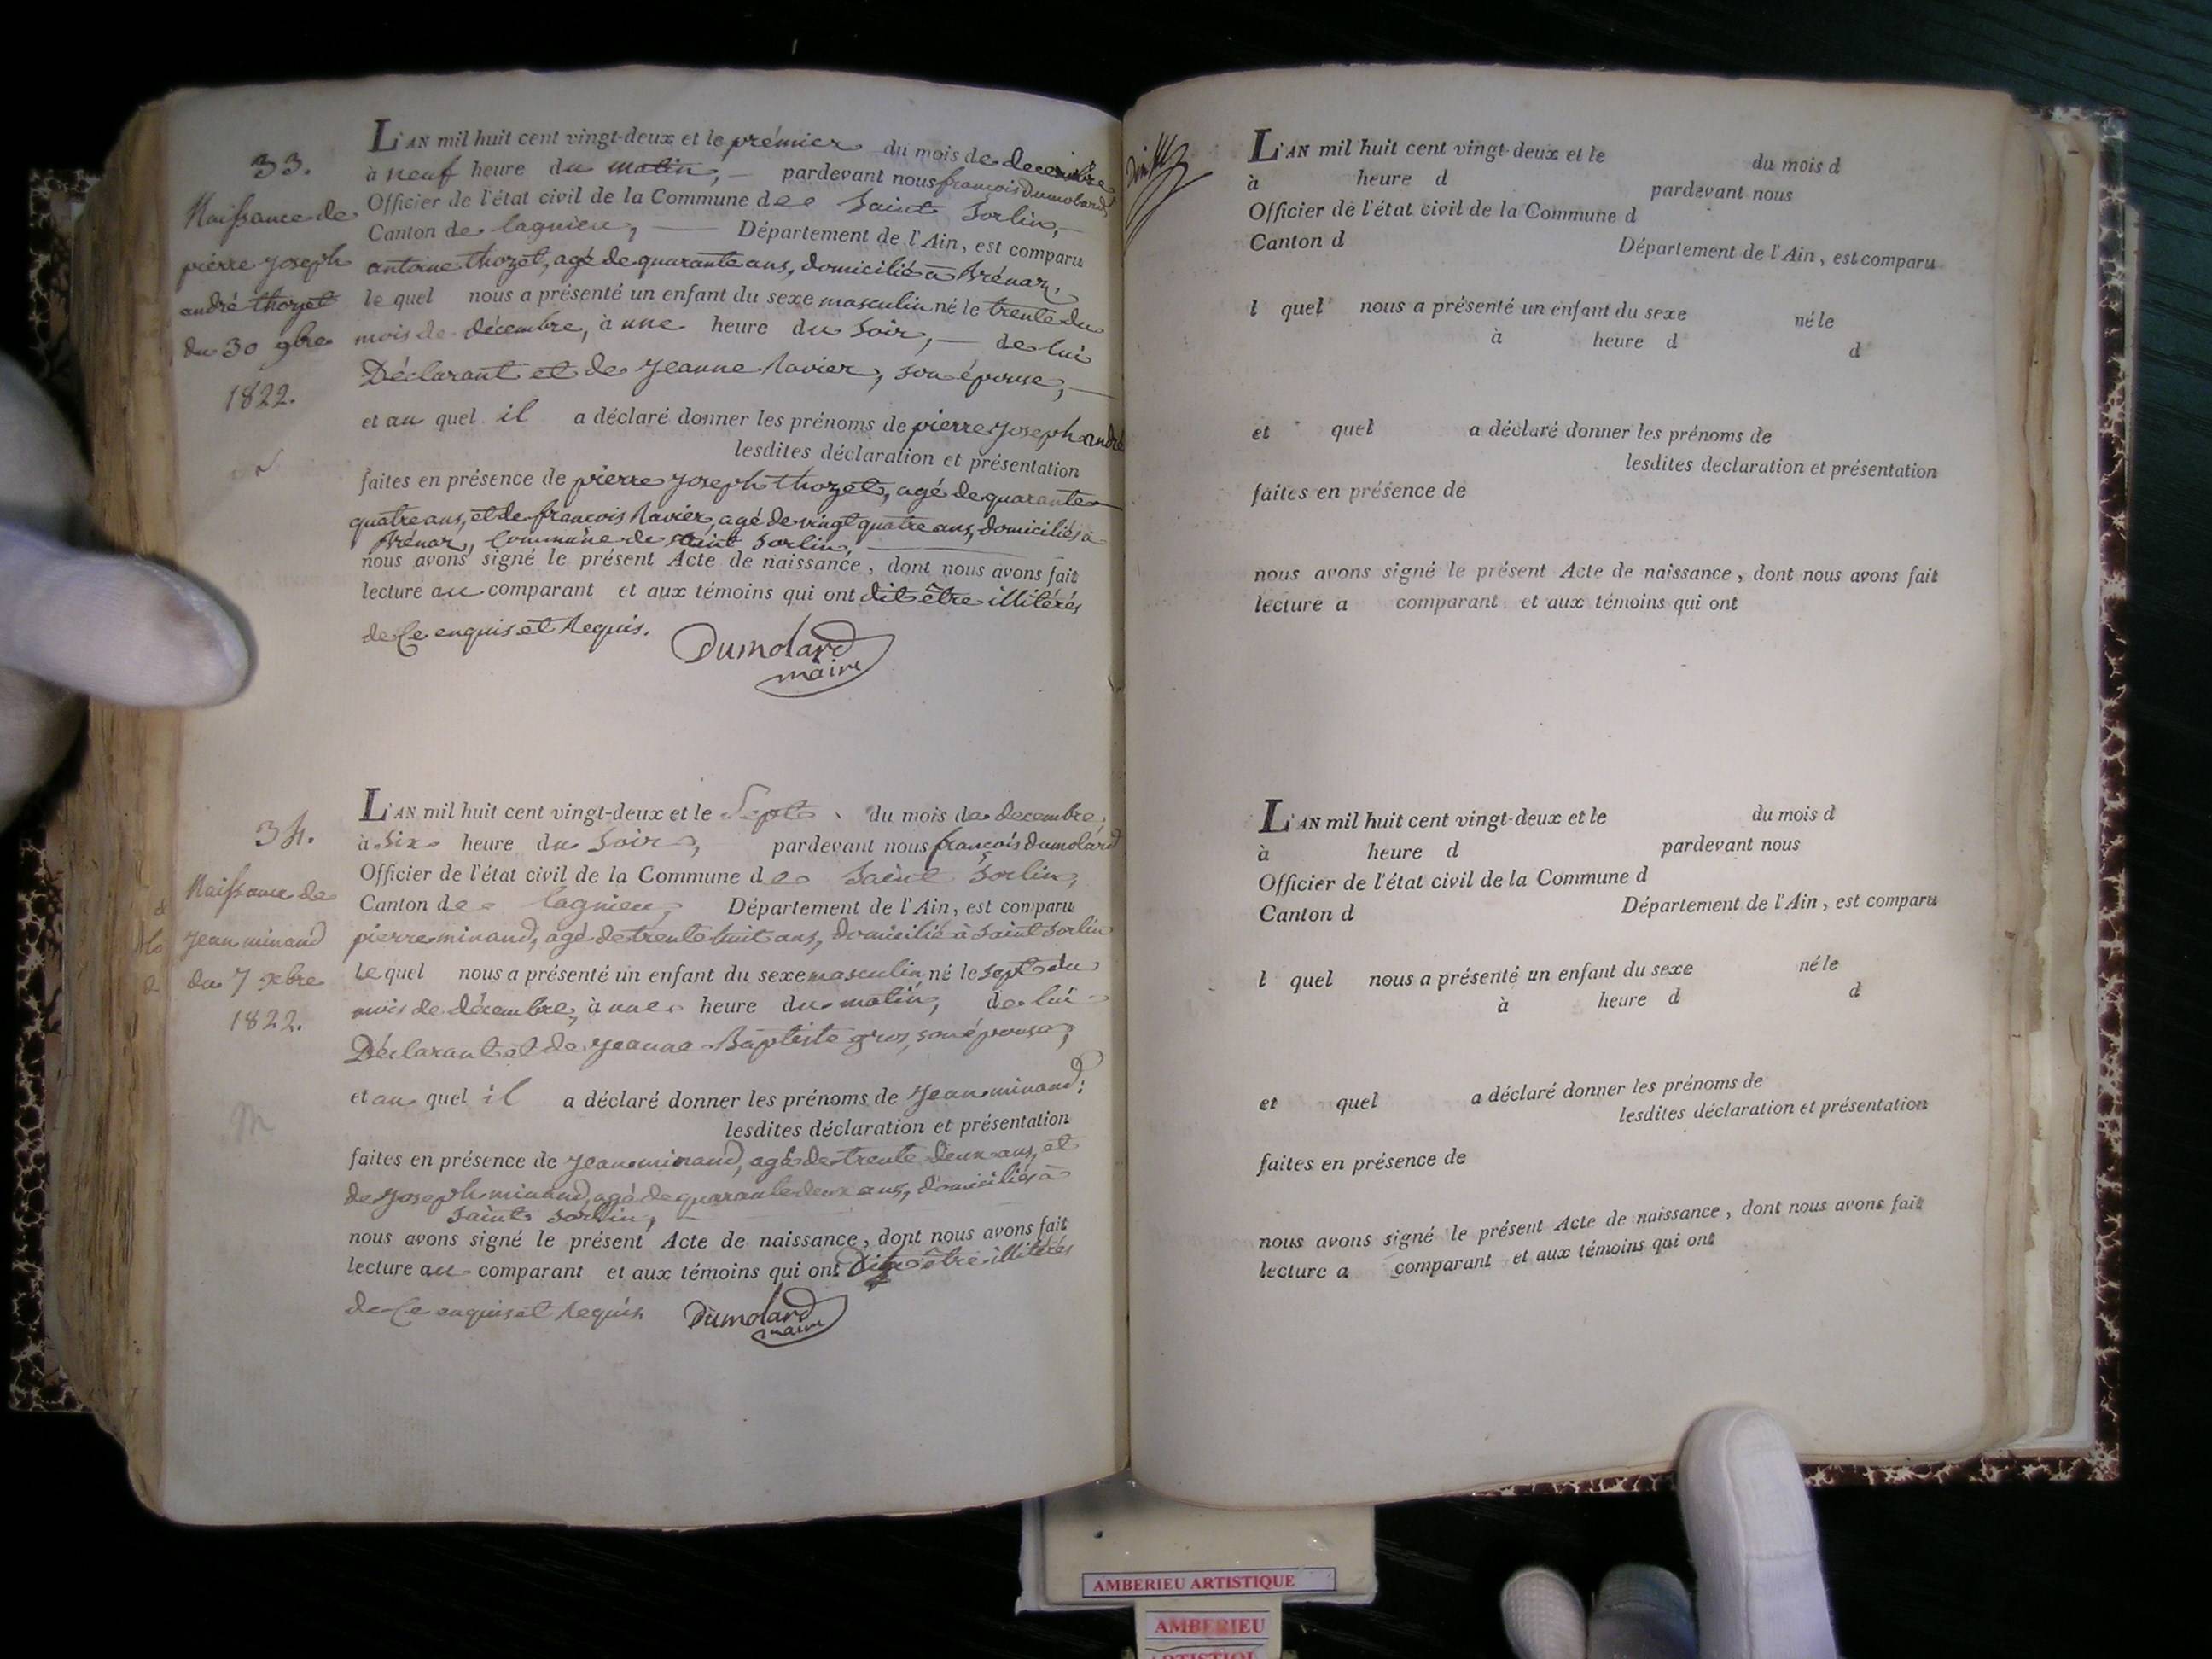 33.
Naissance de
pierre joseph
andré thozet
du 30 9bre
1822.
L'AN mil huit cent vingt-deux et le prémier du mois de decembre
à neuf heure du matin, pardevant nous françois Dumolard
Officier de l'état civil de la Commune de Saint Sorlin,
Canton de lagnieu, Département de l'Ain, est comparu
antoine thozet, agé de quarante ans, domicilié à Brénaz,
le quel nous a présenté un enfant du sexe masculin né le trente du
mois de décembre, à une heure du soir, de lui
Déclarant et de jeanne Ravier, son épouse,
et au quel il a déclaré donner les prénoms de pierre joseph andré
lesdites déclaration et présentation
faites en présence de pierre joseph thozet, agé de quarante
quatre ans, et de françois Ravier, agé de vingt quatre ans, domiciliés à
Brénaz, Commune de Saint Sorlin,
nous avons signé le présent Acte de naissance, dont nous avons fait
lecture au comparant et aux témoins qui ont dit être illitérés
de ce enquis et Requis.
Dumolard
maire
34.
Naissance de
jean minand
du 7 xbre
1822.
L'AN mil huit cent vingt-deux et le Sept du mois de decembre
à Six heure du Soir, pardevant nous françois dumolard
Officier de l'état civil de la Commune de Saint Sorlin,
Canton de lagnieu, Département de l'Ain, est comparu
pierre minand, agé de trente huit ans, domicilié à Saint Sorlin
le quel nous a présenté un enfant du sexe masculin né le sept du
mois de décembre, à une heure du matin, de lui
Déclarant et de jeanne Baptiste gros, son épouse,
et au quel il a déclaré donner les prénoms de jean minand;
lesdites déclaration et présentation
faites en présence de jean minand, agé de trente deux ans, et
de joseph minand, agé de quarante deux ans, domiciliés à
Saint Sorlin,
nous avons signé le présent Acte de naissance, dont nous avons fait
lecture au comparant et aux témoins qui ont dit être illitérés
de ce enquis et Requis
Dumolard
maire
L'AN mil huit cent vingt-deux et le du mois d
à heure d pardevant nous
Officier de l'état civil de la Commune d
Canton d Département de l'Ain, est comparu
l quel nous a présenté un enfant du sexe né le
à heure d d
et quel a déclaré donner les prénoms de
lesdites déclaration et présentation
faites en présence de
nous avons signé le présent Acte de naissance, dont nous avons fait
lecture a comparant et aux témoins qui ont
L'AN mil huit cent vingt-deux et le du mois d
à heure d pardevant nous
Officier de l'état civil de la Commune d
Canton d Département de l'Ain, est comparu
l quel nous a présenté un enfant du sexe né le
à heure d d
et quel a déclaré donner les prénoms de
lesdites déclaration et présentation
faites en présence de
nous avons signé le présent Acte de naissance, dont nous avons fait
lecture a comparant et aux témoins qui ont
AMBERIEU ARTISTIQUE
AMBERIEU
ARTISTIQUE